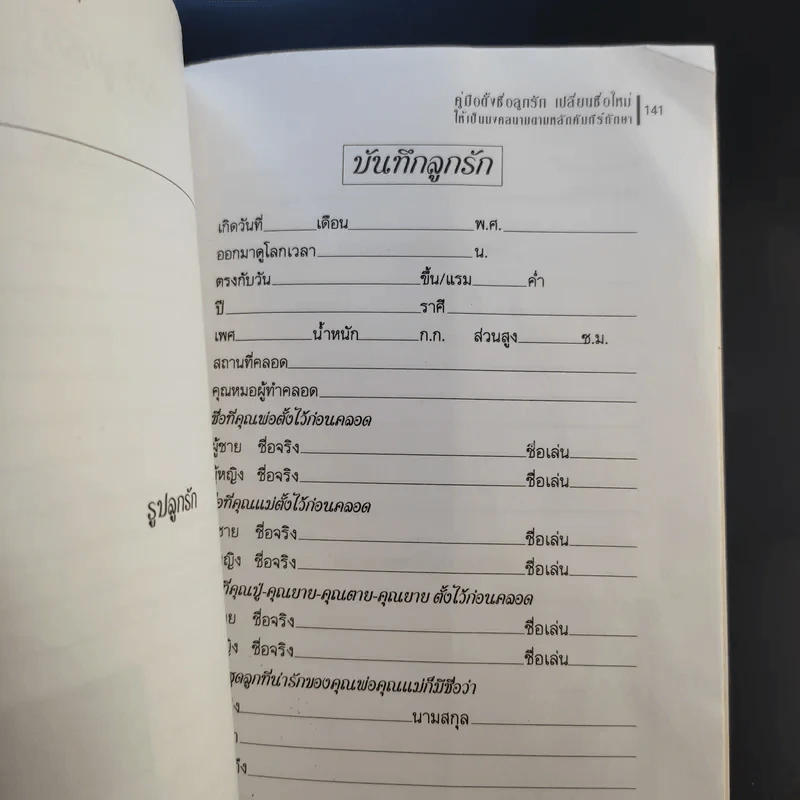 คู่มือตั้งชื่อลูกรัก เปลี่ยนชื่อใหม่
ให้เป็นมงคลนามตามหลักคัมภีร์ทักษา 141
บันทึกลูกรัก
เกิดวันที่ เดือน พ.ศ.
ออกมาดูโลกเวลา น.
ตรงกับวัน ขึ้น/แรม ค่ำ
ปี ราศี
เพศ น้ำหนัก ก.ก. ส่วนสูง ซ.ม.
สถานที่คลอด
คุณหมอผู้ทำคลอด
ชื่อที่คุณพ่อตั้งไว้ก่อนคลอด
ผู้ชาย ชื่อจริง ชื่อเล่น
ผู้หญิง ชื่อจริง ชื่อเล่น
ชื่อที่คุณแม่ตั้งไว้ก่อนคลอด
ชาย ชื่อจริง ชื่อเล่น
หญิง ชื่อจริง ชื่อเล่น
ที่คุณปู่-คุณยาย-คุณตาย-คุณยาย ตั้งไว้ก่อนคลอด
ชื่อจริง ชื่อเล่น
ชื่อจริง ชื่อเล่น
สุดลูกที่น่ารักของคุณพ่อคุณแม่ก็มีชื่อว่า
นามสกุล
รูปลูกรัก